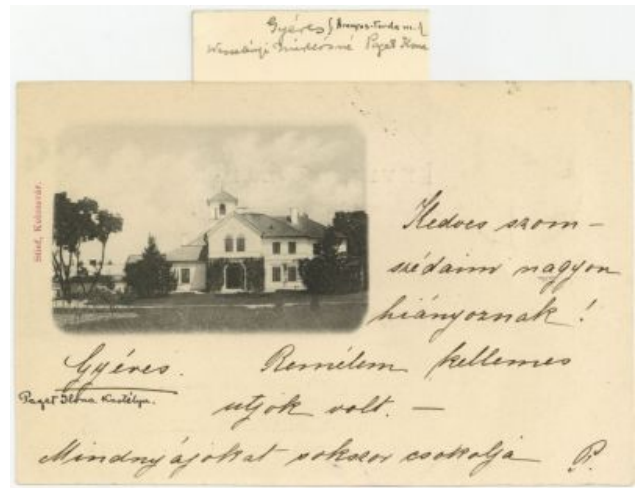 Gyéres (Aranyos-Torda m.)
Wesselényi Miklósné Paget Ilona
Stief, Kolozsvár.
Kedves szom-
szédaim nagyon
hiányoznak!
Gyéres. Remélem kellemes
Paget Ilona Kastélya.
utjok volt. —
Mindnyájokat sokszor csokolja P.